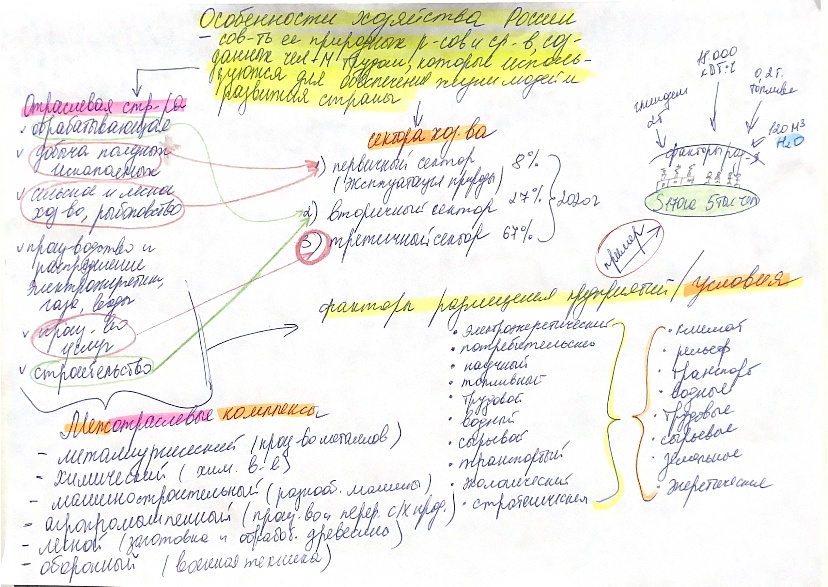 Особенности хозяйства России
- сов-ть ее природных р-сов и ср-в, соз-
данных чел-м трудом, которые исполь-
зуются для обеспечения жизни людей и
развития страны
Отраслевая стр-ра
обрабатывающая
добыча полезных
ископаемых
сельское и лесное
хоз-во, рыболовство
произ-водство и
распределение
электроэнергии,
газа, воды
произ-во
услуг
строительство
сектора хоз-ва
1) первичный сектор 8%
(эксплуатация природы)
2) вторичный сектор 27%
3) третичный сектор 67%
2020г
18.000
кВт·ч
0,2т.
топлива
2т
120 м³
H₂O
факторы
пример
факторы размещения предприятий/условия
• электроэнергетический
• потребительский
• научный
• топливный
• трудовой
• водный
• сырьевой
• транспортный
• экологический
• стратегический
• климат
• рельеф
• транспорт
• водные
• трудовые
• сырьевые
• земельные
• энергетические
Межотраслевые комплексы
- металлургический (произ-во металлов)
- химический (хим. в-в)
- машиностроительный (разнооб. машины)
- агропромышленный (произ-во и перер. с/х прод.)
- лесной (заготовка и обработ. древесины)
- оборонный (военная техника)